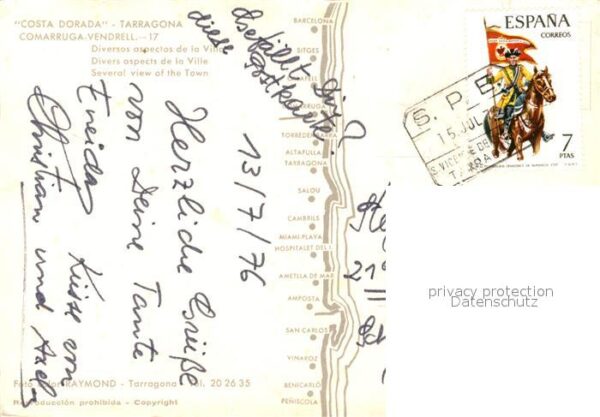 "COSTA DORADA" - TARRAGONA
COMARRUGA-VENDRELL.-17
Diversos aspectos de la Villa
Divers aspects de la Ville
Several view of the Town
gefällt Dir
diese Postkarte?
13/7/76
Herzliche Grüße
von Deine Tante
Eneida
Küsse von
Christian und Axel
BARCELONA
SITGES
TORREDEMBARRA
ALTAFULLA
TARRAGONA
SALOU
CAMBRILS
MIAMI-PLAYA
HOSPITALET DEL I.
AMETLLA DE MAR
AMPOSTA
SAN CARLOS
VINAROZ
BENICARLÓ
PEÑISCOLA
RAYMOND - Tarragona - Tel. 20 26 35
Reproducción prohibida - Copyright
ESPAÑA
CORREOS
7
PTAS
S. P. E.
15 JUL
S. VICENTE DE
TARRA
21
privacy protection
Datenschutz